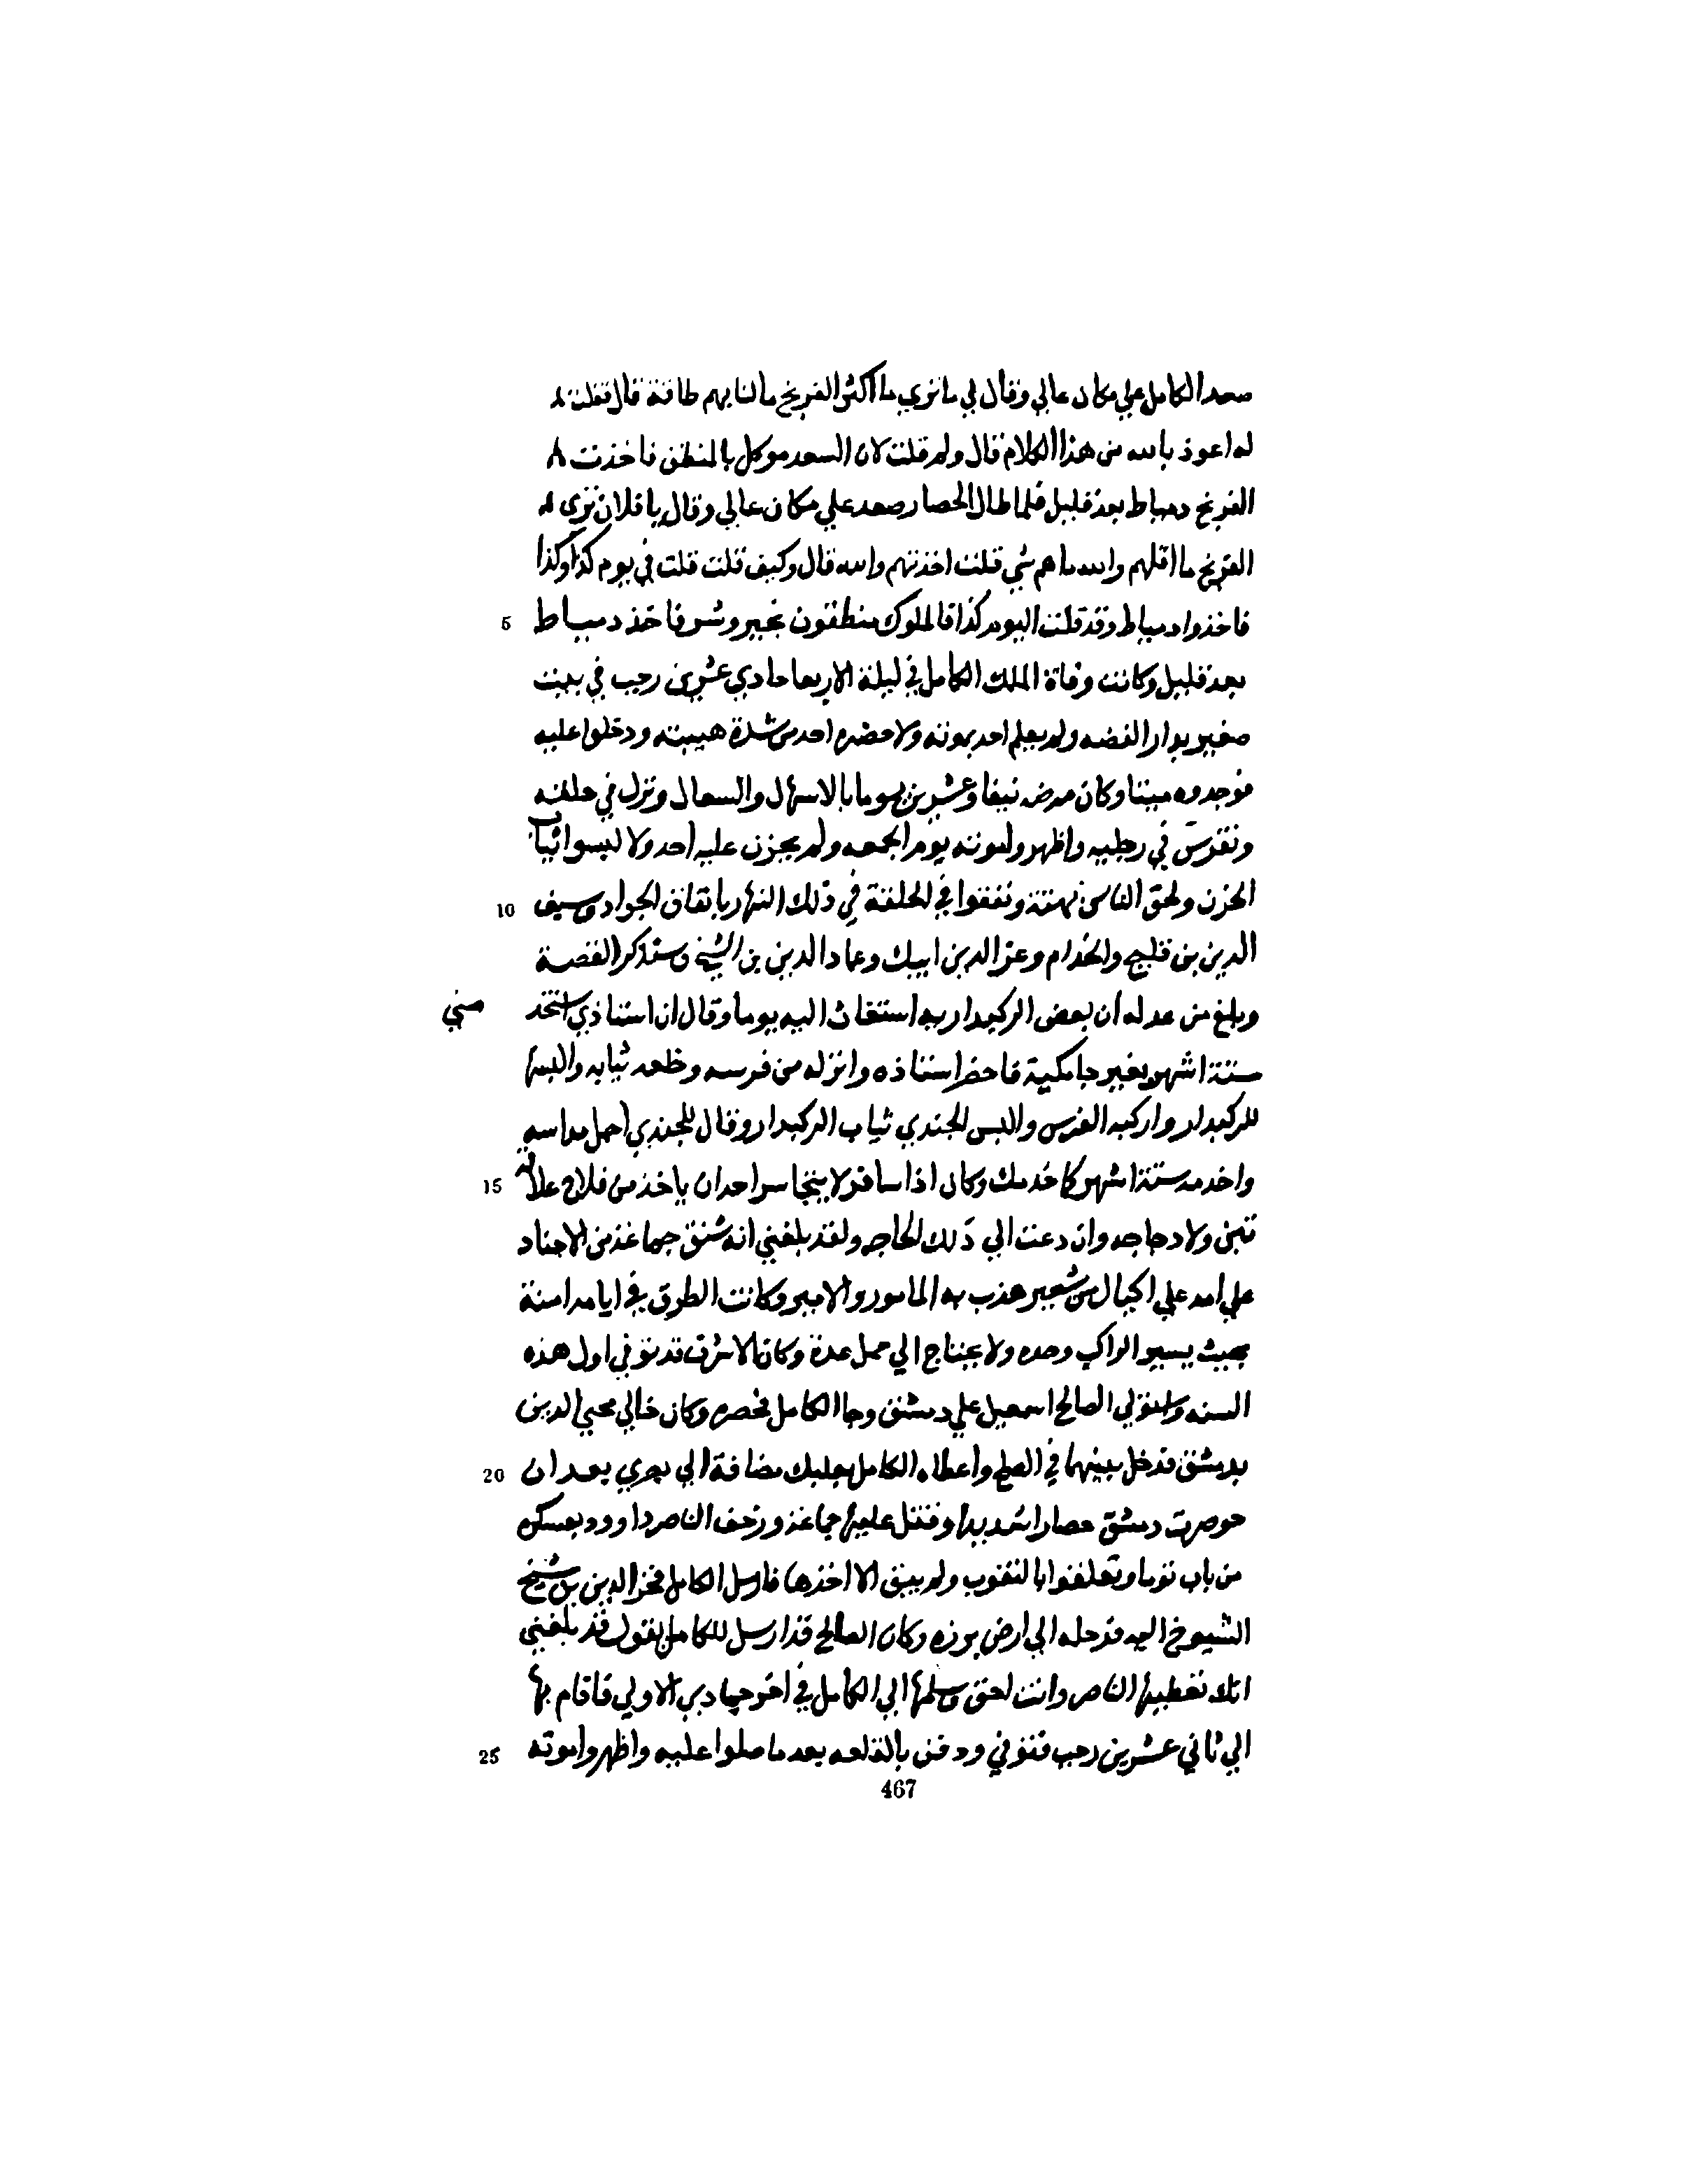 صعد الكامل علي مكان عالي وقال لي ما تري ما اكثر الفرنج ما لنا بهم طاقة قال فقلت
له اعوذ بالله من هذا الكلام قال ولم قلت لان السعد موكل بالمنطق فاخذت
الفرنج دمياط بعد قليل فلما طال الحصار صعد علي مكان عالي وقال يا فلان تري
الفرنج ما اقلهم والله ما هم شي فقلت اخذتهم والله قال وكيف قلت قلت في يوم كذا وكذا
فاخذوا دمياط وقد قلت اليوم كذا فالملوك منطقون بخير وشر فاخذ دمياط 5
بعد قليل وكانت وفاة الملك الكامل في ليلة الاربعا حادي عشرين رجب في بيت
صغير بدار الفضه ولم يعلم احد بموته ولا حضره احد من شدة هيبته ودخلوا عليه
فوجدوه ميتا وكان مرضه نيفا وعشرين يوما بالاسهال والسعال ونزله في حلقه
ونقرس في رجليه واظهروا موته يوم الجمعه ولم يحزن عليه احد ولا لبسوا ثياب
الحزن ولحق الناس بهتة ونفقوا في الحلقة في ذلك النهار باتفاق الجواد وسيف 10
الدين بن قليج والخدام وعز الدين ايبك وعماد الدين بن الشيخ وسنذكر القصة
وبلغ من عدله ان بعض الركبداريه استغاث اليه يوما وقال ان استاذي استخد مني
ستة اشهر بغير جامكية فاحضر استاذه وانزله من فرسه وخلعه ثيابه والبسها
للركبدار واركبه الفرس والبس الجندي ثياب الركبدار وقال للجندي احمل مداسه
واخدمه ستة اشهر كما خدمك وكان اذا سافر لا يتجاسر احد ان ياخذ من فلاح علاقة 15
تبن ولا دجاجه وان دعت الي ذلك الحاجه ولقد بلغني انه شنق جماعة من الاجناد
علي امد علي اكيال من شعير هذب به المامور والامير وكانت الطرق في ايامه امنة
بحيث يسير الراكب وحده ولا يحتاج الي حمل عدة وكان الاشرف قد توفي اول هذه
السنه واستولي الصالح اسمعيل علي دمشق وجا الكامل فحصره وكان خالي محيي الدين
بدمشق فدخل بينهما في الصلح واعطاه الكامل بعلبك مضافة الي بصري بعد ان 20
حوصرت دمشق حصارا شديدا وقتل عليها جماعة وزحف الناصر داوود بعسكره
من باب توما وتعلقوا بالنقوب ولم يبق الا اخذها فارسل الكامل فخر الدين بن شيخ
الشيوخ اليه فرحله الي ارض برزه وكان الصالح قد ارسل للكامل يقول قد بلغني
انك تعطيها الناصر وانت احق وسلمها الي الكامل في اخر جمادي الاولي فاقام بها
الي ثاني عشرين رجب فتوفي ودفن بالقلعه بعد ما صلوا عليه واظهروا موته 25
467